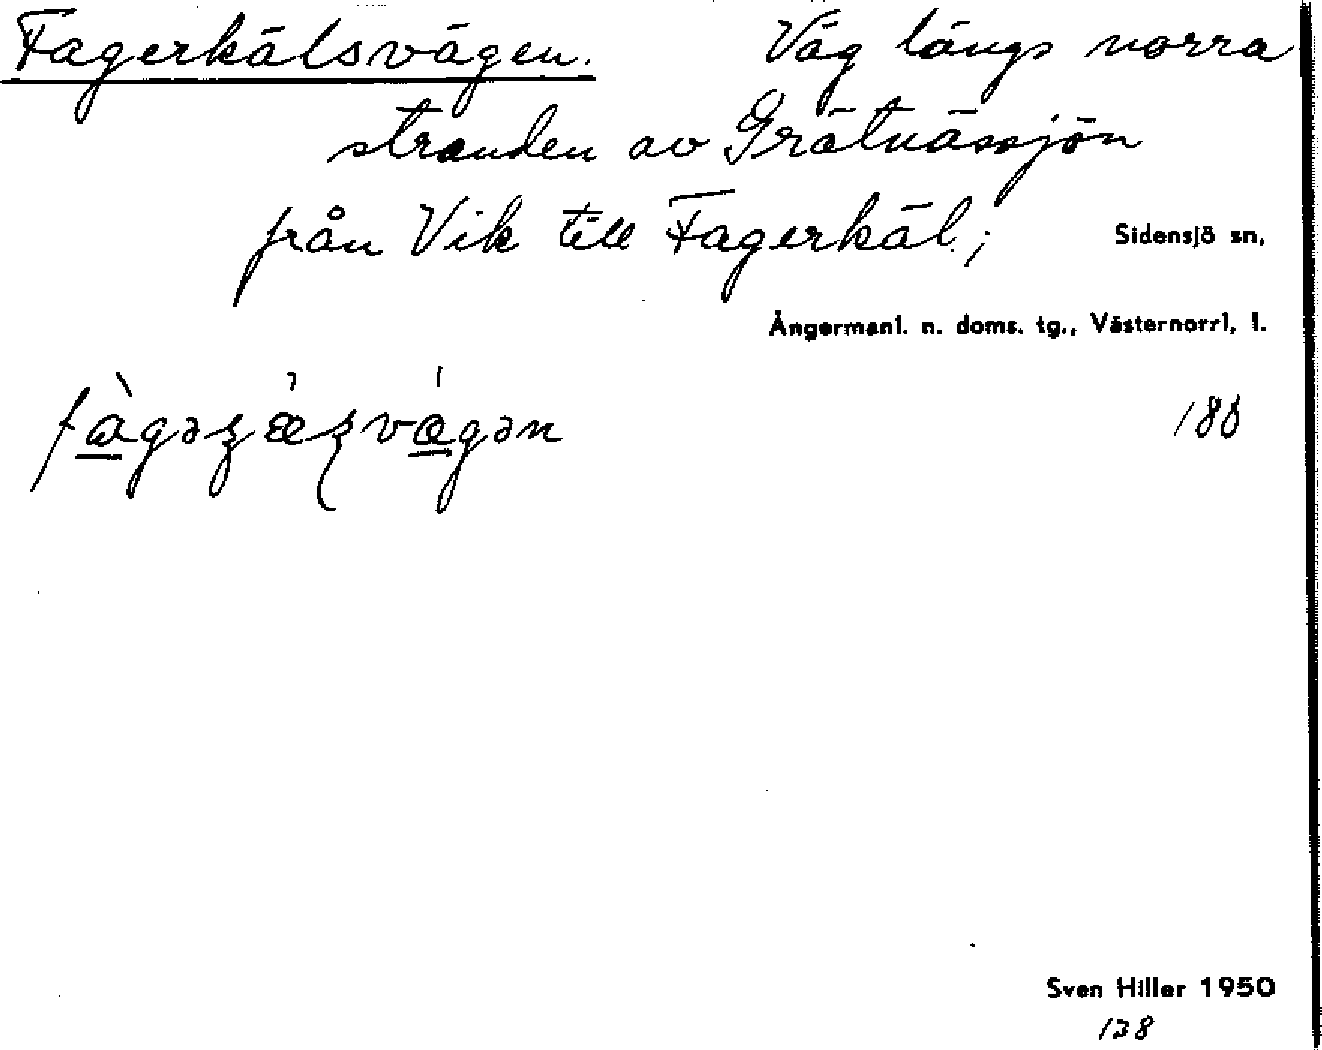 Fagerkälsvägen. Väg längs norra
stranden av Grätnässjön
från Vik till Fagerkäl; Sidensjö sn,
Ångermanl. n. doms. tg., Västernorrl. l.
186
Sven Hiller 1950
128